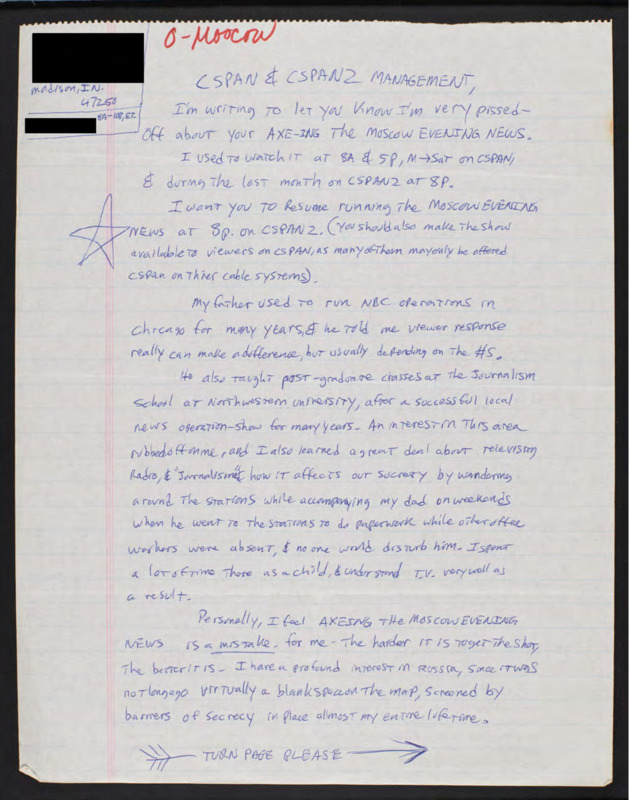 O-Moscow
Madison, IN.
47250
8A-108, EZ.
CSPAN & CSPAN2 MANAGEMENT,
I'm writing to let you know I'm very pissed-
off about your AXE-ING THE MOSCOW EVENING NEWS.
I used to watch it at 8A & 5P, M→Sat on CSPAN,
& during the last month on CSPAN2 at 8P.
I want you to resume running the MOSCOW EVENING
NEWS at 8p. on CSPAN2. (You should also make the show
available to viewers on CSPAN, as many of them may only be offered
CSPAN on thier cable systems).
My father used to run NBC operations in
Chicago for many years, & he told me viewer response
really can make a difference, but usually depending on the #S.
He also taught post-graduate classes at the Journalism
School at Northwestern University, after a successful local
news operation-show for many years. An interest in this area
rubbed off on me, and I also learned a great deal about television
Radio, & "Journalism", how it affects out society by wandering
around the stations while accompanying my dad on weekends
when he went to the stations to do paperwork while other office
workers were absent, & no one would disturb him. I spent
a lot of time there as a child, & understand T.V. very well as
a result.
Personally, I feel AXEING THE MOSCOW EVENING
NEWS is a mistake. for me - The harder it is to get the shot,
the better it is - I have a profound interest in Russia, since it was
not long ago virtually a blank space on the map, screened by
barriers of secrecy in place almost my entire lifetime.
TURN PAGE PLEASE